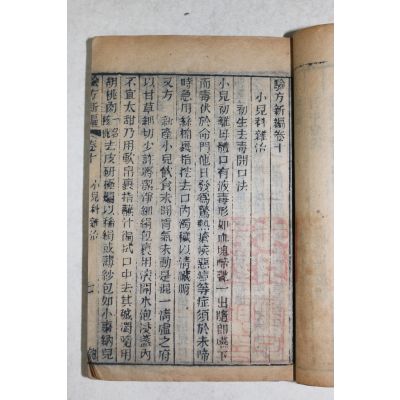 驗方新編卷十
小兒科雜治
初生去毒開口法
小兒初離母體口有液毒形如血塊啼聲一出隨即嚥下
而毒伏於命門他日發為驚熱瘡痘惡症等症須於未啼
時急用綿裹指挖去口內濁穢以清臟腑
又方 新產小兒飲食未開胃氣未動是混一清虛之府
以甘草細切少許將潔淨細絹包裹用滾開水泡浸盞內
不宜太甜乃用軟帛裹指蘸汁徧拭口中去其穢濁隨用
胡桃肉去皮研極爛以稀絹或薄紗包如小棗納兒
驗方新編 卷十 小兒科雜治 一